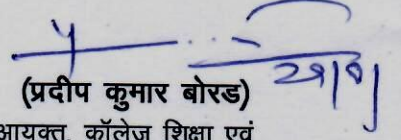 (प्रदीप कुमार बोरड)
आयुक्त, कॉलेज शिक्षा एवं